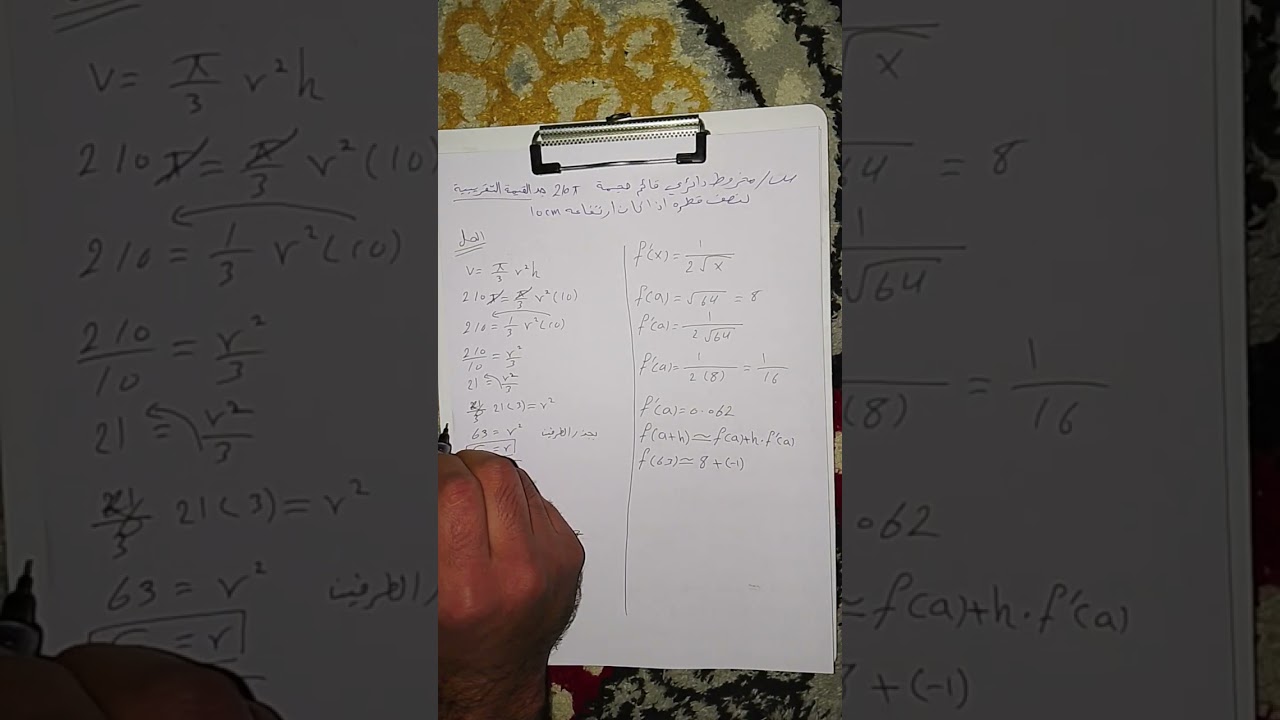 س/ مخروط دائري قائم حجمة 210π جد القيمة التقريبية
لنصف قطره اذا كان ارتفاعه 10cm
الحل
V = π/3 r²h
210π = π/3 r²(10)
210 = 1/3 r²(10)
210/10 = r²/3
21 = r²/3
21(3) = r²
63 = r² بجذر الطرفين
= r
f'(x) = 1/2√x
f(a) = √64 = 8
f'(a) = 1/2√64
f'(a) = 1/2(8) = 1/16
f'(a) = 0.062
f(a+h) ≃ f(a)+h.f'(a)
f(63) ≃ 8 + (-1)